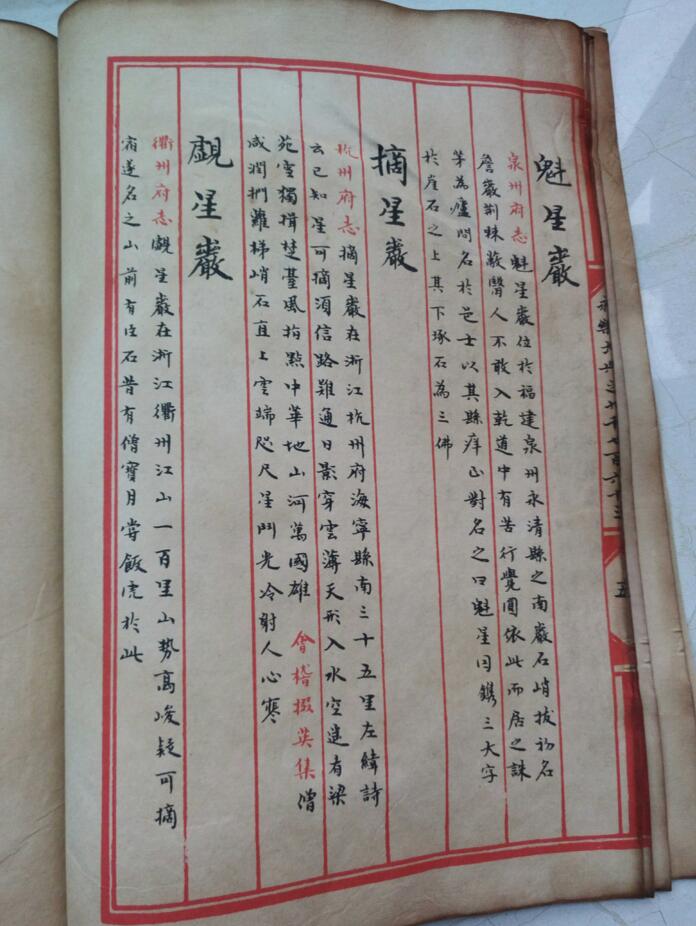 永樂大典卷之九千七百六十三
五
魁星巖
泉州府志魁星巖位於福建泉州永清縣之南巖石峭拔初名
詹巖荆棘蔽翳人不敢入乾道中有苦行覺圓依此而居之誅
茅為廬問名於邑士以其縣庠正對名之曰魁星因鐫三大字
於崖石之上其下琢石為三佛
摘星巖
杭州府志摘星巖在浙江杭州府海寧縣南三十五里左緯詩
云已知星可摘須信路難通日影穿雲薄天形入水空遠有梁
苑雪獨揖楚臺風指點中華地山河萬國雄 會稽掇英集僧
咸潤捫難梯峭石直上雲端咫尺星鬥光冷射人心寒
覰星巖
衢州府志覰星巖在浙江衢州江山一百里山勢高峻疑可摘
宿遂名之山前有巨石昔有僧寶月嘗飯虎於此